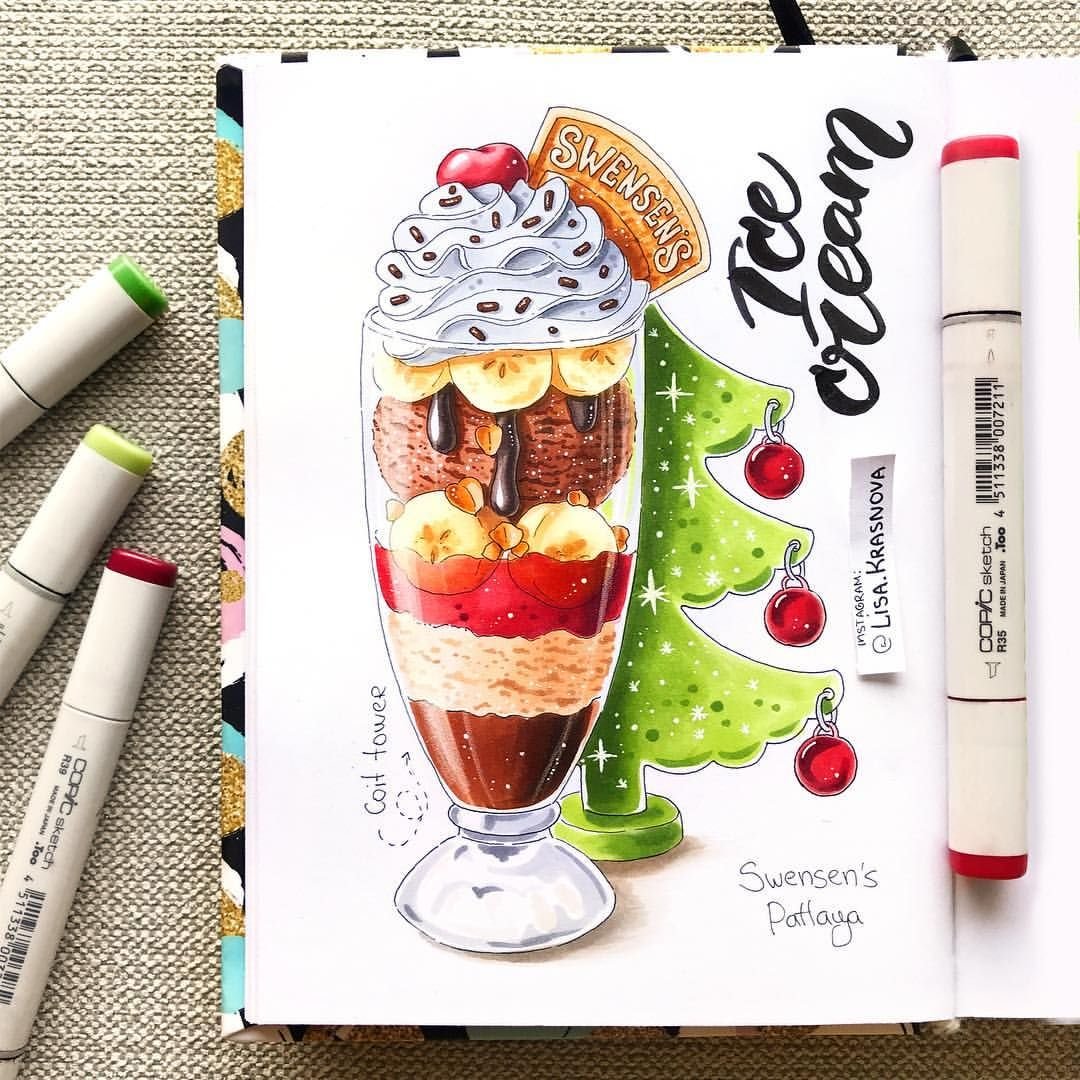 SWENSEN'S
Ice
cream
INSTAGRAM:
@LISA.KRASNOVA
Coit tower
Swensen's
Pattaya
COPIC sketch .Too
R35 MADE IN JAPAN
4 511338 007211
COPIC sketch
R39 MADE IN JAPAN .Too